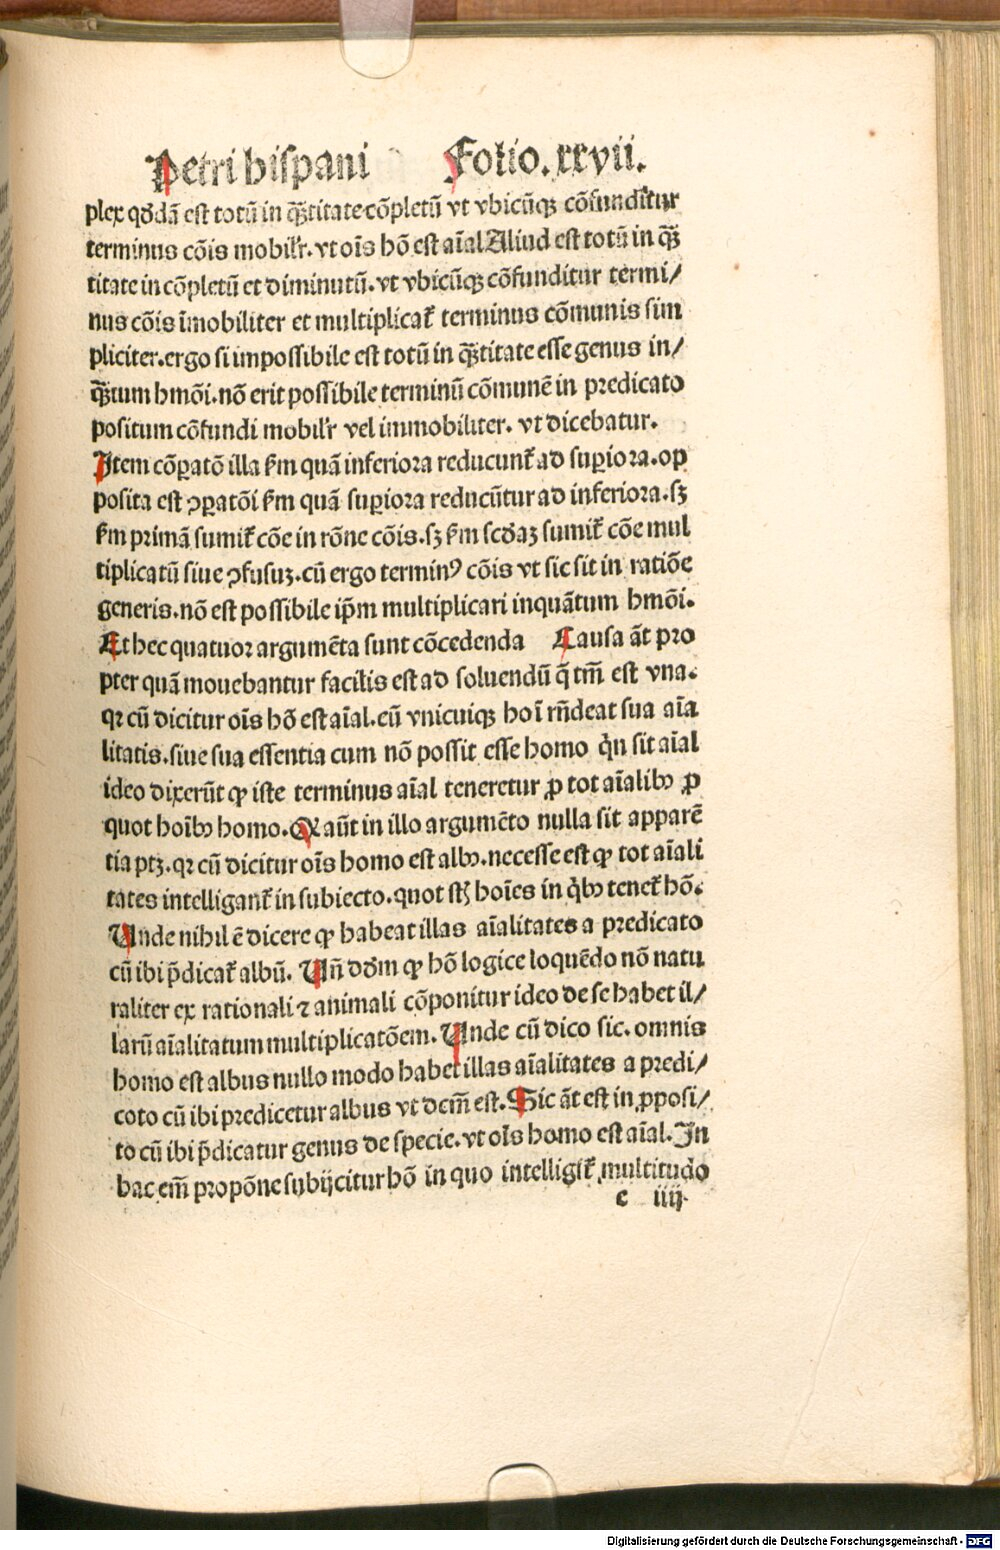 Petri hispani Folio.xxvii.
plex qd̄dā est totū in q̄titate cōpletū vt vbicūqꝫ cōfunditur
terminus cōis mobilr̄. vt oīs hō est aīal Aliud est totū in q̄
titate in cōpletū et diminutū. vt vbicūqꝫ cōfunditur termi/
nus cōis īmobiliter et multiplicat̄ terminus cōmunis sim
pliciter. ergo si impossibile est totū in q̄titate esse genus in/
q̄tum hmōi. nō erit possibile terminū cōmunē in predicato
positum cōfundi mobilr̄ vel immobiliter. vt dicebatur.
Item cōꝑatō illa ẜm quā inferiora reducunt̄ ad suꝑiora. op
posita est ꝯꝑatōi ẜm quā suꝑiora reducūtur ad inferiora. sꝫ
ẜm primā sumit̄ cōe in rōne cōis. sꝫ ẜm scd̄aꝫ sumit̄ cōe mul
tiplicatū siue ꝯfusuꝫ. cū ergo terminꝰ cōis vt sic sit in ratiōe
generis. nō est possibile ip̄m multiplicari inquātum hmōi.
Et hec quatuor argumēta sunt cōcedenda Causa āt pro
pter quā mouebantur facilis est ad soluendū q̄ tm̄ est vna.
qꝛ cū dicitur oīs hō est aīal. cū vnicuiqꝫ hoī rn̄deat sua aīa
litatis. siue sua essentia cum nō possit esse homo q̇n sit aīal
ideo dixerūt ꝙ iste terminus aīal teneretur ꝓ tot aīalibꝰ ꝓ
quot hoībꝰ homo. Qꝛ aūt in illo argumēto nulla sit apparē
tia ptꝫ. qꝛ cū dicitur oīs homo est albꝰ. necesse est ꝙ tot aīali
tates intelligant̄ in subiecto. quot sꝫ hoīes in q̇bꝰ tenet̄ hō.
Unde nihil ē dicere ꝙ habeat illas aīalitates a predicato
cū ibi p̄dicat̄ albū. Un̄ dd̄m ꝙ hō logice loquēdo nō natu
raliter ex rationali ⁊ animali cōponitur ideo de se habet il/
larū aīalitatum multiplicatōem. Unde cū dico sic. omnis
homo est albus nullo modo habet illas aīalitates a predi/
coto cū ibi predicetur albus vt dcm̄ est. Sic āt est in ꝓposi/
to cū ibi p̄dicatur genus de specie. vt oīs homo est aīal. In
hac em̄ propōne subijcitur hō in quo intelligit̄ multitudo
c iiij
Digitalisierung gefördert durch die Deutsche Forschungsgemeinschaft - DFG